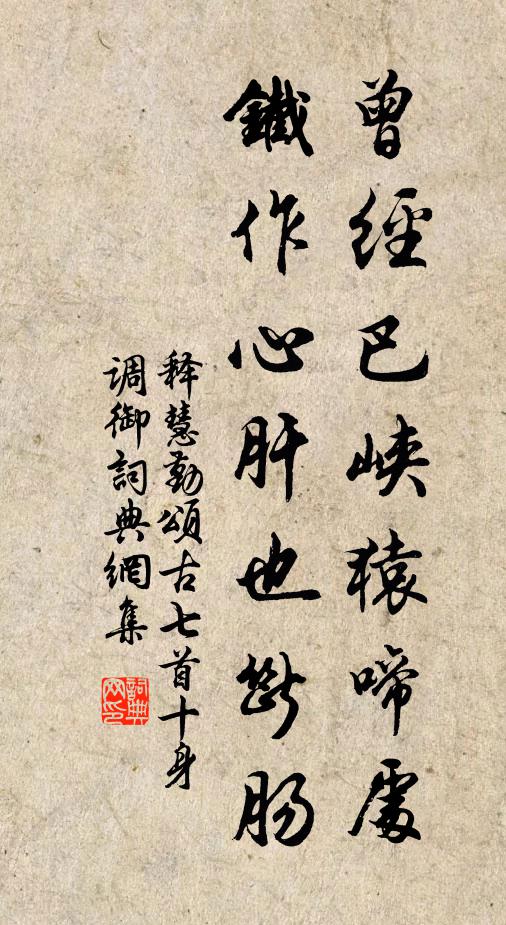 曾經巴峽猿啼處
鐵作心肝也斷腸
釋慧勤頌古七首十身
调御詞典網集
詞典網印